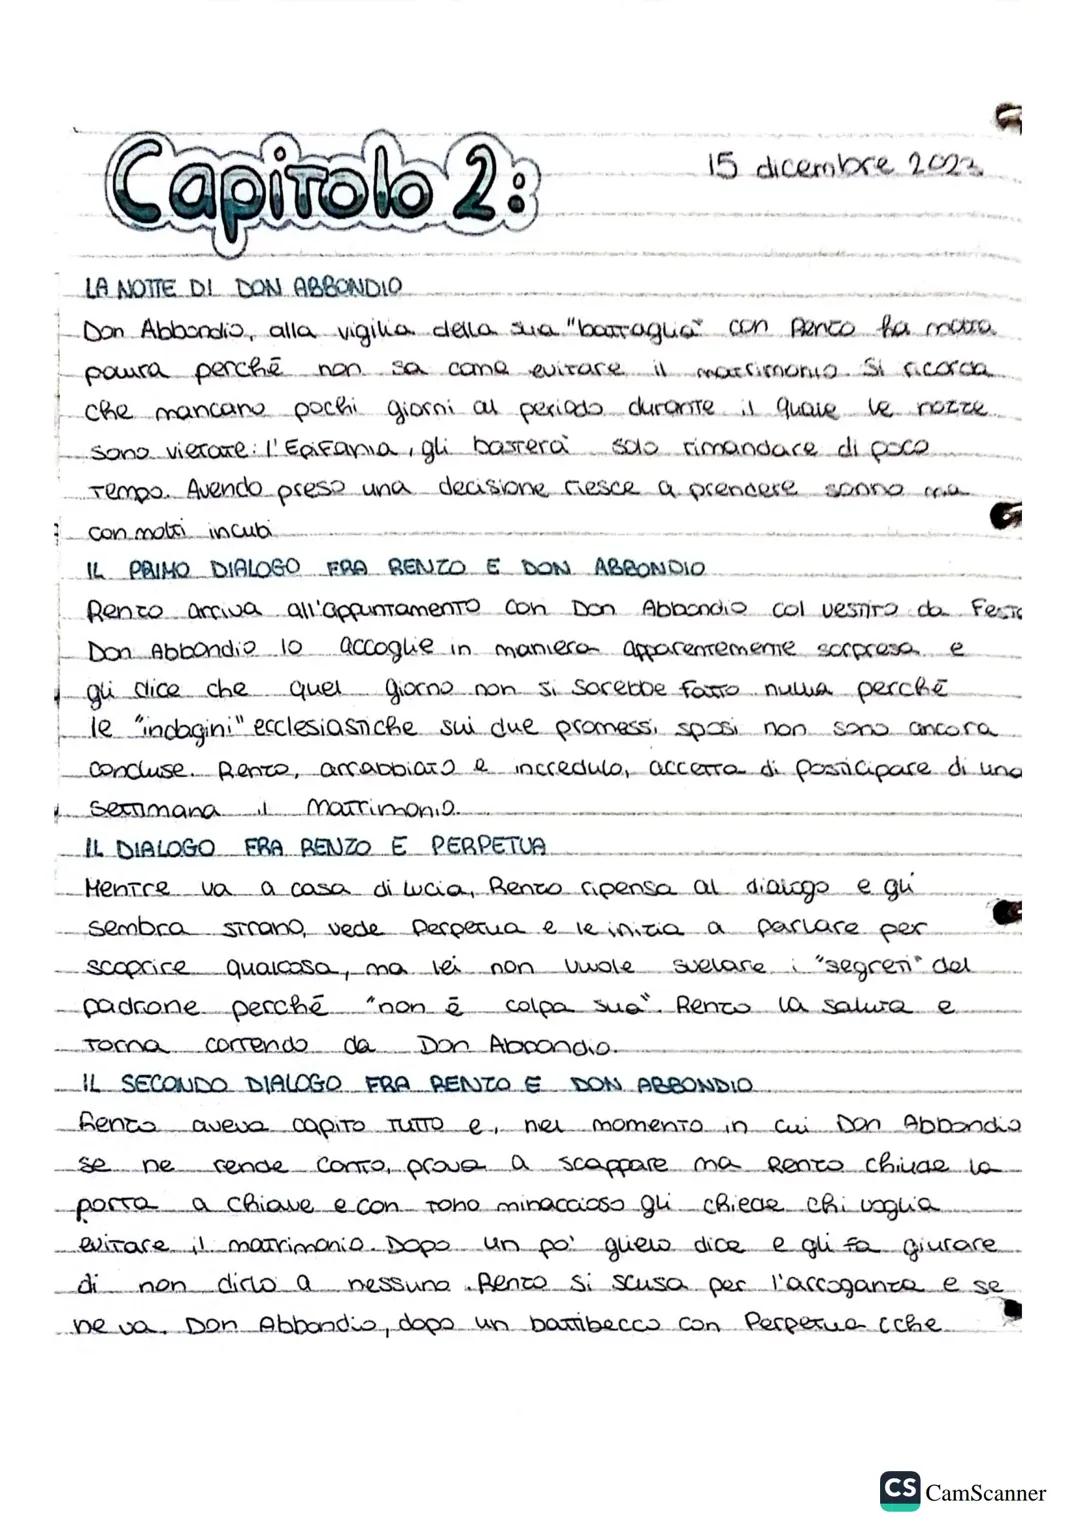 Capitolo 2:
15 dicembre 2023
LA NOTTE DI DON ABBONDIO
Don Abbondio, alla vigilia della sua "battaglia" con Renzo ha molta
paura perché non sa come evitare il matrimonio. Si ricorda
che mancano pochi giorni al periodo durante il quale le nozze
sono vietate: l'Epifania, gli basterà solo rimandare di poco
tempo. Avendo preso una decisione riesce a prendere sonno ma
con molti incubi
IL PRIMO DIALOGO FRA RENZO E DON ABBONDIO
Renzo arriva all'appuntamento con Don Abbondio col vestito da Festa
Don Abbondio lo accoglie in maniera apparentemente sorpresa e
gli dice che quel giorno non si sarebbe fatto nulla perché
le "indagini" ecclesiastiche sui due promessi sposi non sono ancora
concluse. Renzo, arrabbiato e incredulo, accetta di posticipare di una
settimana il matrimonio.
IL DIALOGO FRA RENZO E PERPETUA
Mentre va a casa di Lucia, Renzo ripensa al dialogo e gli
sembra strano, vede Perpetua e le inizia a parlare per
scoprire qualcosa, ma lei non vuole svelare i "segreti" del
padrone perché "non è colpa sua". Renzo la saluta e
torna correndo da Don Abbondio.
IL SECONDO DIALOGO FRA RENZO E DON ABBONDIO
Renzo aveva capito tutto e, nel momento in cui Don Abbondio
se ne rende conto, prova a scappare ma Renzo chiude la
porta a chiave e con tono minaccioso gli chiede chi voglia
evitare il matrimonio. Dopo un po' glielo dice e gli fa giurare
di non dirlo a nessuno. Renzo si scusa per l'arroganza e se
ne va. Don Abbondio, dopo un battibecco con Perpetua (che
CS CamScanner